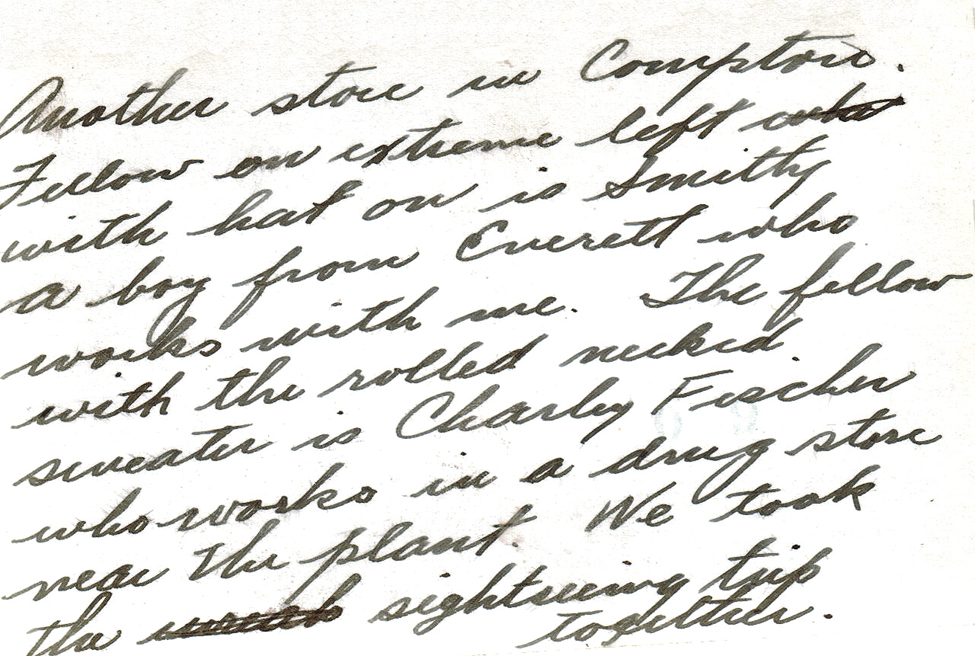 Another store in Compton.
Fellow on extreme left who
with hat on is Smitty
a boy from Everett who
works with me. The fellow
with the rolled necked
sweater is Charley Fischer
who works in a drug store
near the plant. We took
the sightseeing trip
together.